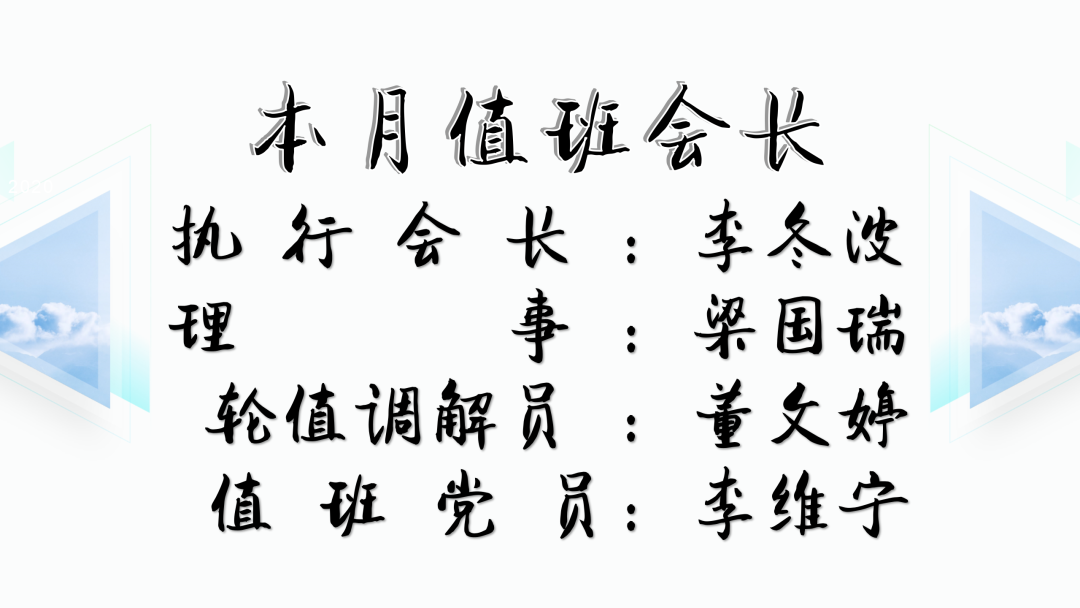 本月值班会长
执行会长：李冬波
理事：梁国瑞
轮值调解员：董文婷
值班党员：李维宁